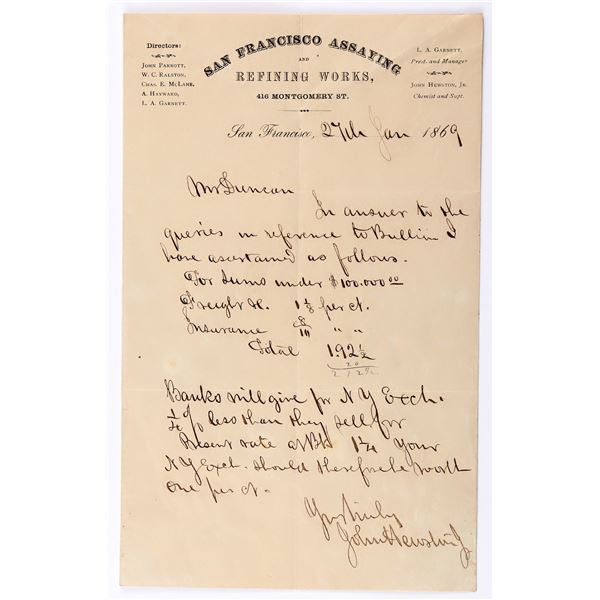 Directors:
JOHN PARROTT,
W. C. RALSTON,
CHAS. E. McLANE,
A. HAYWARD,
L. A. GARNETT.
SAN FRANCISCO ASSAYING
AND
REFINING WORKS,
416 MONTGOMERY ST.
L. A. GARNETT,
Prest. and Manager
JOHN HEWSTON, JR.
Chemist and Supt.
San Francisco, 27th Jan 1869
Mr Duncan
In answer to the
queries in reference to Bullion I
have ascertained as follows.
For sums under $100.000.00
Freight &c. 1 1/8 per ct.
Insurance 8/10 " "
Total 1.92 1/2
20
2 12 1/2
Banks will give for N Y Exch.
1/4 % less than they sell for
Present rate at Bk 1 1/4 Your
N Y Exch. should therefore be worth
one per ct.
Yrs truly
John Hewston Jr